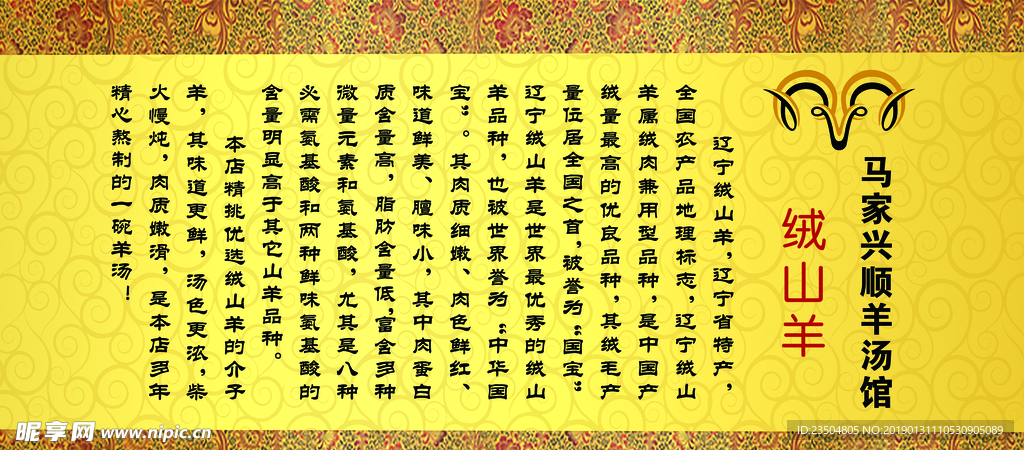 马家兴顺羊汤馆
绒山羊
辽宁绒山羊，辽宁省特产，
全国农产品地理标志，辽宁绒山
羊属绒肉兼用型品种，是中国产
绒量最高的优良品种，其绒毛产
量位居全国之首，被誉为“国宝”
辽宁绒山羊是世界最优秀的绒山
羊品种，也被世界誉为“中华国
宝”。其肉质细嫩、肉色鲜红、
味道鲜美、膻味小，其中肉蛋白
质含量高，脂肪含量低，富含多种
微量元素和氨基酸，尤其是八种
必需氨基酸和两种鲜味氨基酸的
含量明显高于其它山羊品种。
本店精挑优选绒山羊的介子
羊，其味道更鲜，汤色更浓，柴
火慢炖，肉质嫩滑，是本店多年
精心熬制的一碗羊汤！
昵享网 www.nipic.cn
ID:23504805 NO:20190131110530905089